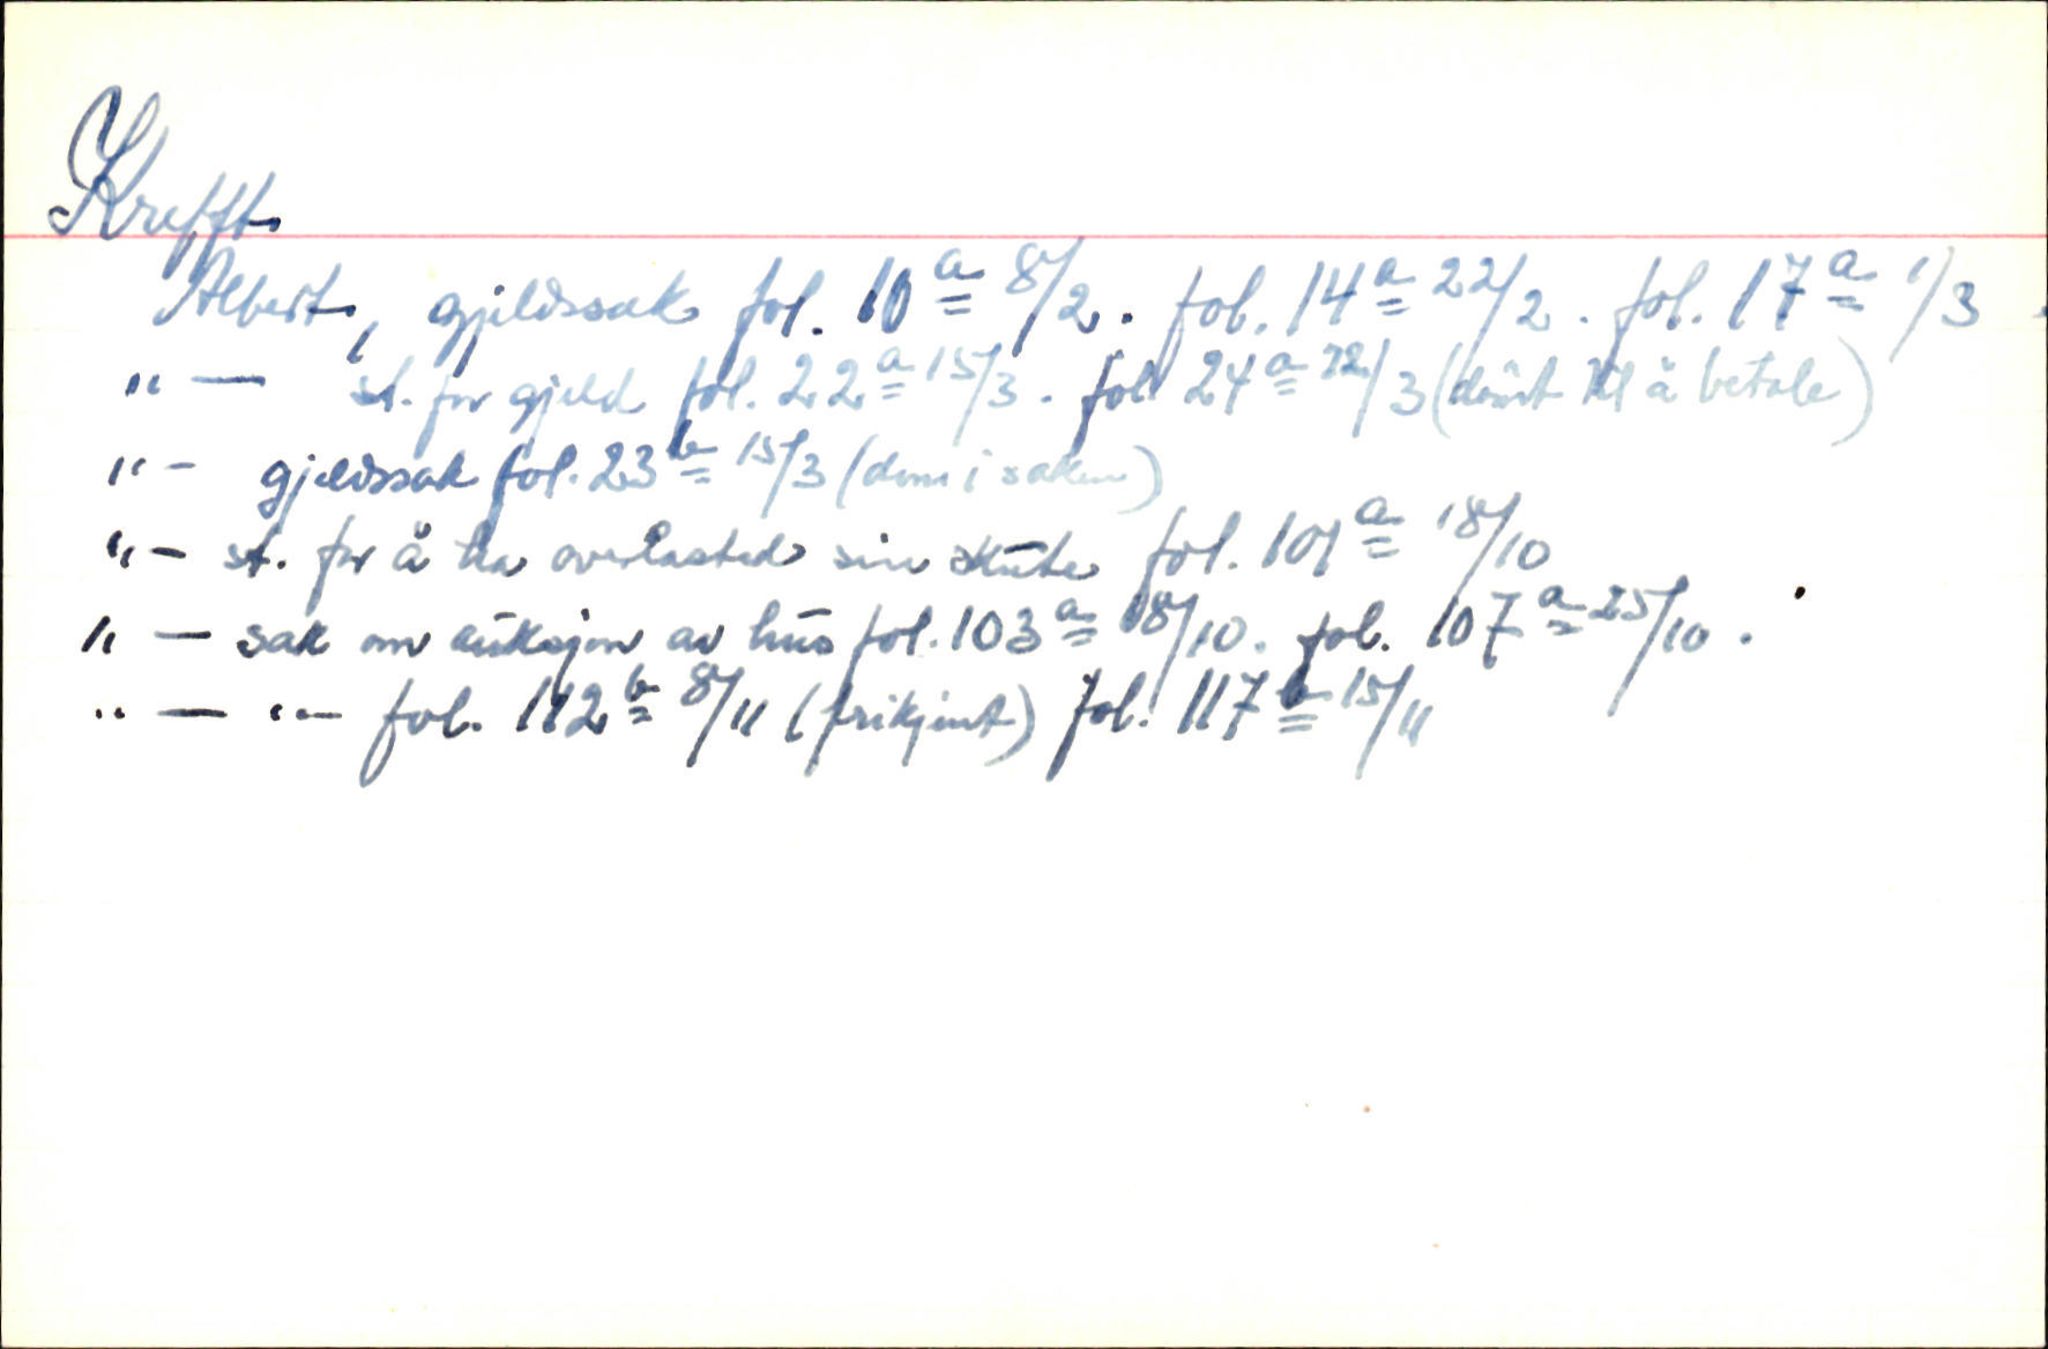 Krefft
Albert, gjeldssak fol. 10 a 8/2. fol. 14 a 22/2. fol. 17 a 1/3.
" — st. for gjeld fol. 22 a 15/3. fol 24 a 22/3 (dömt til å betale)
" — gjeldssak fol. 23 b 15/3 (dom i saken)
" — st. for å ha overlasted sin skute fol. 101 a 18/10
" — sak om auksjon av hus fol. 103 a 18/10. fol. 107 a 25/10.
" — " — fol. 112 b 8/11 (frikjent) fol. 117 b 15/11